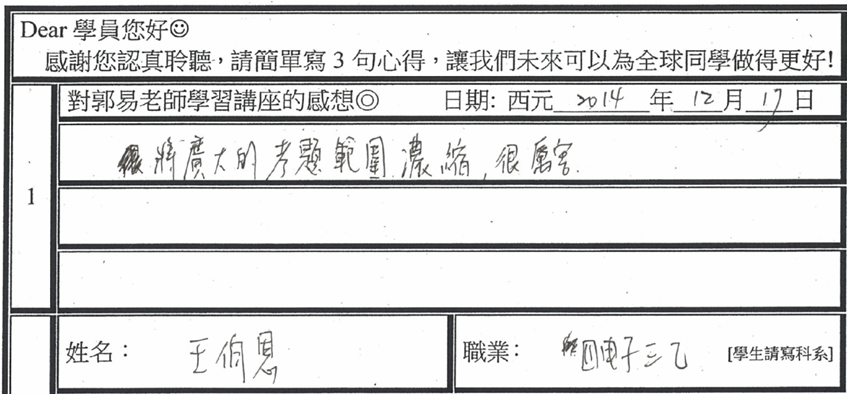 Dear 學員您好☺
感謝您認真聆聽，請簡單寫 3 句心得，讓我們未來可以為全球同學做得更好!
對郭易老師學習講座的感想◎ 日期: 西元 2014 年 12 月 17 日
將廣大的考題範圍濃縮，很厲害.
1
姓名： 王伯恩
職業： 四电子三乙 [學生請寫科系]